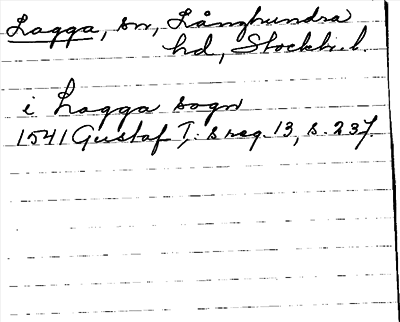 Lagga, sn, Långhundra
hd, Stockh. l.
i Lagga sogn
1541 Gustaf I:s reg. 13, s. 237.